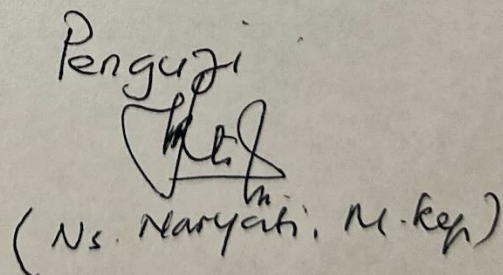 Penguji
(Ns. Naryati, M.Kep)